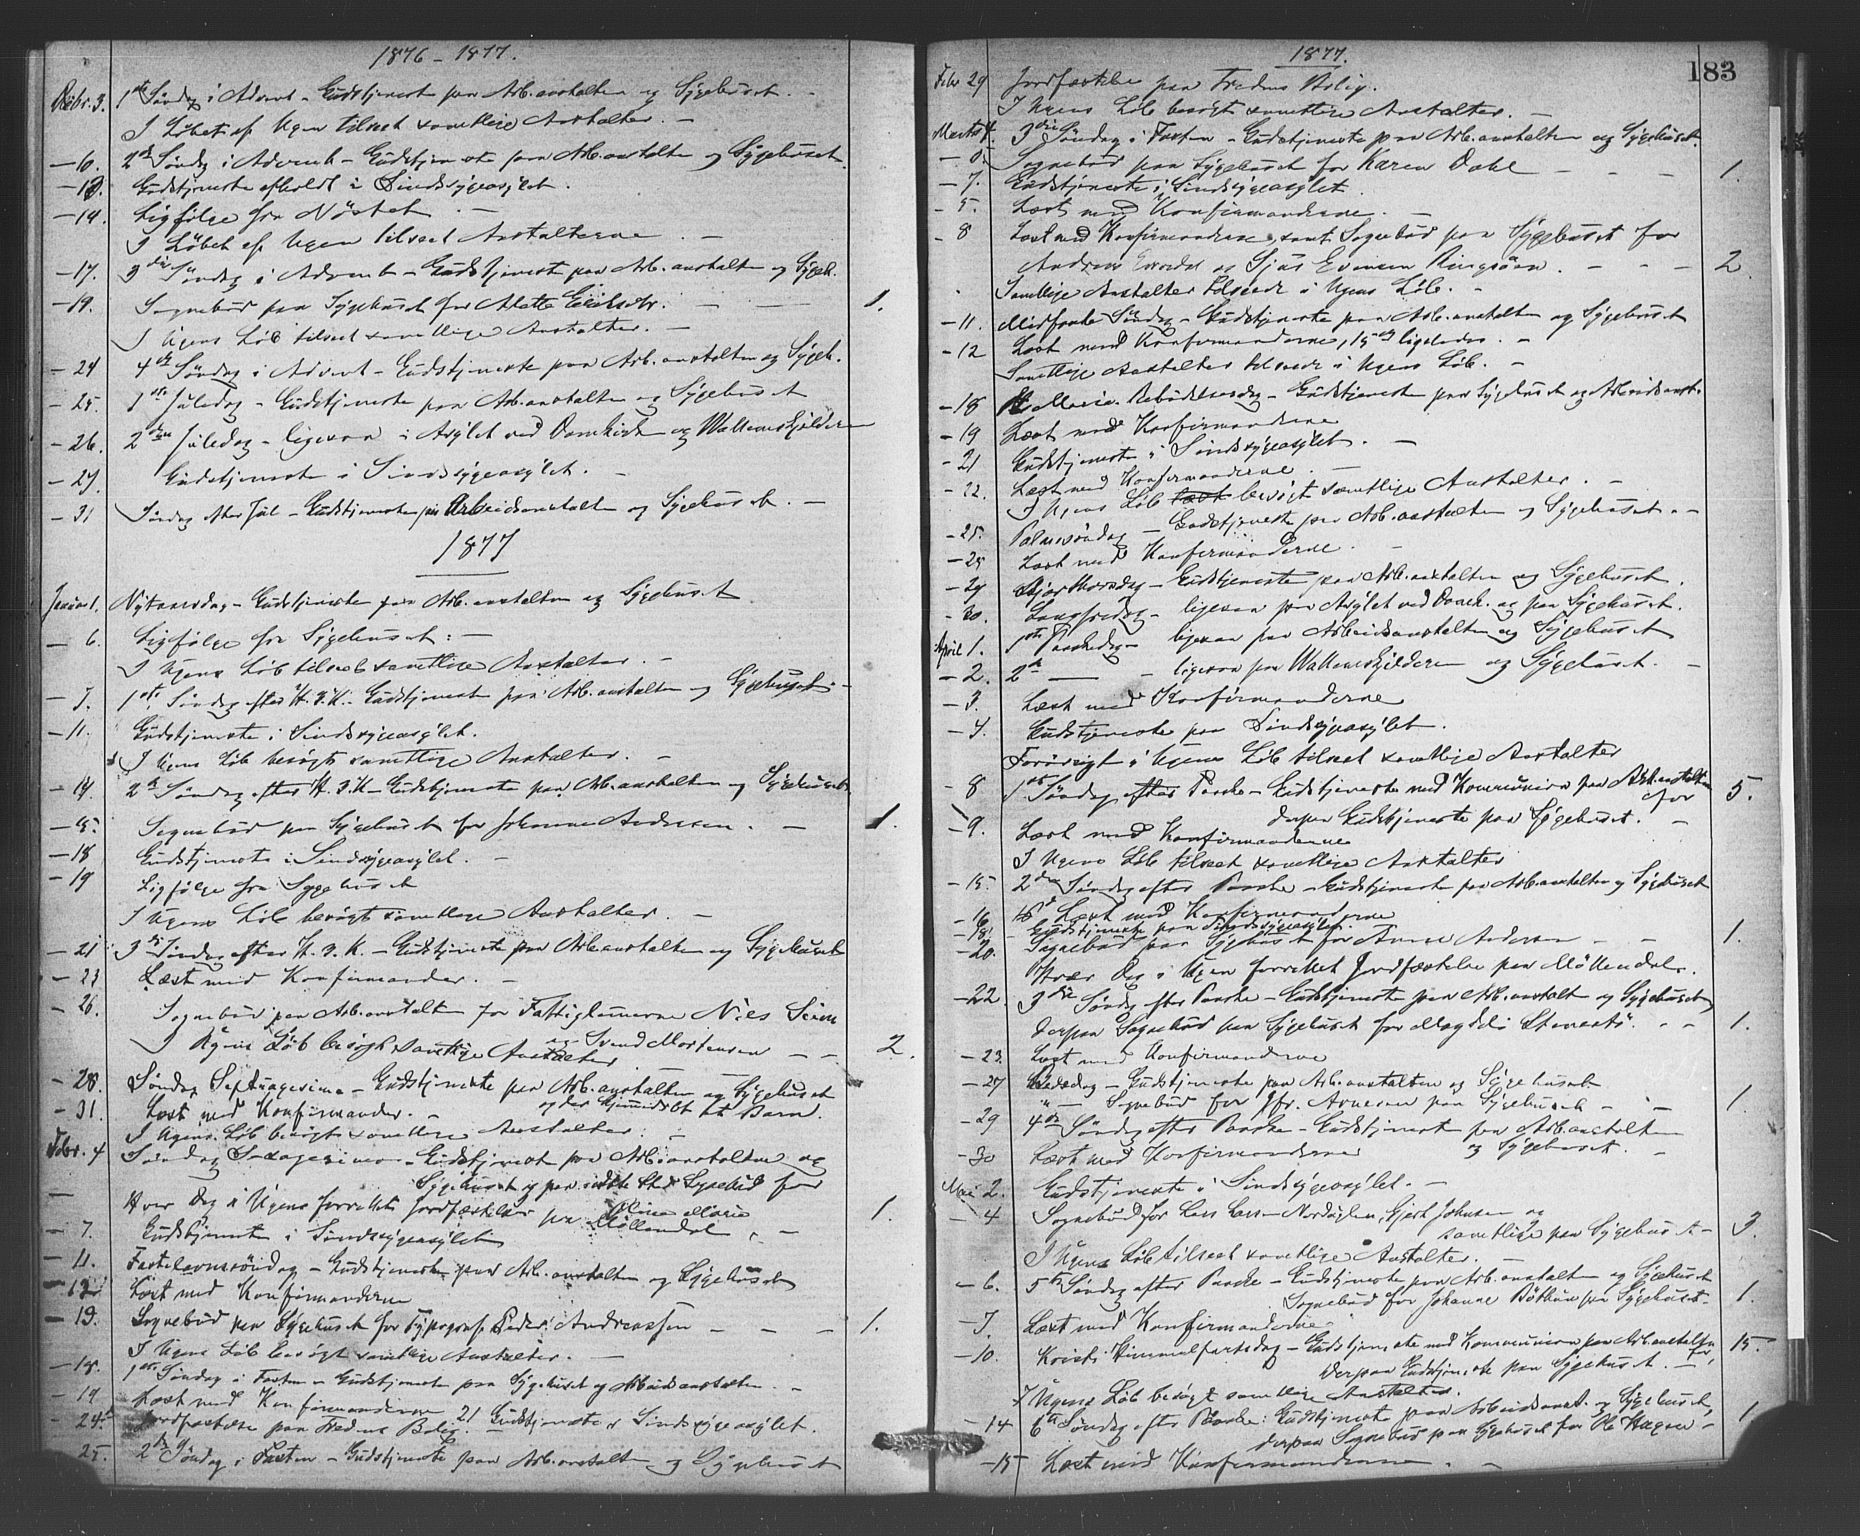 1876 - 1877.
Decbr. 3. 1ste Søndag i Advent - Gudstjeneste paa Arb.anstalten og Sygehuset. -
I Løbet af Ugen tilseet samtlige Anstalter. -
- 10. 2den Søndag i Advent - Gudstjeneste paa Arb.anstalten og Sygehuset.
- 13. Gudstjeneste afholdt i Sindssygeasylet.
- 14. Ligfølge fra Nøstet. -
I Løbet af Ugen tilseet Anstalterne. -
- 17. 3die Søndag i Advent - Gudstjeneste paa Arb.anstalten og Sygeh.
- 19. Sognebud paa Sygehuset for Mette - 1.
I Ugens Løb tilseet samtlige Anstalter. -
- 24 4de Søndag i Advent - Gudstjeneste paa Arb.anstalten og Sygeh.
- 25. 1ste Juledag - Gudstjeneste paa Arb.anstalten og Sygehuset
- 26. 2den Juledag - ligesaa i Asylet ved Domkirken og
- 27. Gudstjeneste i Sindssygeasylet. -
- 31 Søndag efter Jul - Gudstjeneste paa Arbeidsanstalten og Sygehuset. -
1877
Januar 1. Nytaarsdag - Gudstjeneste paa Arb.anstalten og Sygehuset
- 6. Ligfølge fra Sygehuset. -
I Ugens Løb tilseet samtlige Anstalter. -
- 7. 1ste Søndag efter H.3.K. Gudstjeneste paa Arb.anstalten og Sygehuset. -
- 11. Gudstjeneste i Sindssygeasylet.
I Ugens Løb besøgt samtlige Anstalter. -
- 14. 2den Søndag efter H.3.K - Gudstjeneste paa Arb.anstalten og Sygehuset.
- 15. Sognebud paa Sygehuset for Johanne Andersen. - 1.
- 18 Gudstjeneste i Sindssygeasylet. -
- 19 Ligfølge fra Sygehuset
I Ugens Løb besøgt samtlige Anstalter. -
- 21 3die Søndag efter H.3.K. - Gudstjeneste paa Arb.anstalten og Sygehuset
- 23 Læst med Konfirmander. -
- 26. Sognebud paa Arb.anstalten for Fattiglemmerne Niels
og Svend Mortensen - - 2.
I Ugens Løb besøgt samtlige Anstalter
- 28. Søndag Septuagesima - Gudstjeneste paa Arb.anstalten og Sygehuset
og der hjemmedøbt et Barn.
- 31. Læst med Konfirmander. -
I Ugens Løb besøgt samtlige Anstalter.
Febr. 4 Søndag Sexagesima - Gudstjeneste paa Arb.anstalten og
Sygehuset og paa sidste Sted Sognebud for
Marie 1.
Hver Dag i Ugen forrettet Jordfæstelse paa Møllendal. -
- 7. Gudstjeneste i Sindssygeasylet
- 11. Fastelavnssøndag - Gudstjeneste paa Arb.anstalten og Sygehuset
- 12. Læst med Konfirmanderne
- 13. Sognebud paa Sygehuset for Typograf Peder Andreassen - - - 1.
I Ugens Løb besøgt samtlige Anstalter. -
- 18. 1ste Søndag i Fasten - Gudstjeneste paa Sygehuset og Arbeidsanstalten. -
- 19 Læst med Konfirmanderne 21 Gudstjeneste i Sindssygeasylet.
- 24. Jordfæstelse paa Fredens Bolig. -
- 25. 2den Søndag i Fasten - Gudstjeneste paa Arb.anstalten og Sygehuset
1877.
183
Febr 29 Jordfæstelse paa Fredens Bolig.
I Ugens Løb besøgt samtlige Anstalter. -
Marts 4. 3die Søndag i Fasten - Gudstjeneste paa Arb.anstalten og Sygehuset.
Sognebud paa Sygehuset for Karen Dahl - - - 1.
- 7. Gudstjeneste i Sindssygeasylet
- 5. Læst med Konfirmanderne. -
- 8 Læst med Konfirmanderne, samt Sognebud paa Sygehuset for
Andreas og Sjur - - - 2.
Samtlige Anstalter tilseede i Ugens Løb. -
- 11. Midfaste Søndag - Gudstjeneste paa Arb.anstalten og Sygehuset
- 12 Læst med Konfirmanderne, 15de ligeledes. -
Samtlige Anstalter tilseede i Ugens Løb. -
- 18 Mariæ Bebudelsesdag - Gudstjeneste paa Sygehuset og Arbeidsanst.
- 19 Læst med Konfirmanderne
- 21 Gudstjeneste i Sindssygeasylet. -
- 22. Læst med Konfirmanderne. -
I Ugens Løb besøgt samtlige Anstalter. -
- 25. Palmesøndag - Gudstjeneste paa Arb.anstalten og Sygehuset. -
Læst med Konfirmanderne. -
- 29 Skjærthorsdag - Gudstjeneste paa Arb.anstalten og Sygehuset.
- 30. Langfredag - ligesaa paa Asylet ved Domk. og paa Sygehuset.
April 1. 1ste Paaskedag - ligesaa paa Arbeidsanstalten og Sygehuset
- 2. 2den - ligesaa paa og Sygehuset. -
- 3. Læst med Konfirmanderne
- 4. Gudstjeneste paa Sindssygeasylet.
Forøvrigt i Ugens Løb tilseet samtlige Anstalter
- 8 1ste Søndag efter Paaske - Gudstjeneste med Kommunion paa Arb.anstalten
for 5.
derpaa Gudstjeneste paa Sygehuset. -
- 9. Læst med Konfirmanderne
I Ugens Løb tilseet samtlige Anstalter
- 15. 2den Søndag efter Paaske - Gudstjeneste paa Arb.anstalten og Sygehuset
- 16 Læst med Konfirmanderne
- 18. Gudstjeneste paa Sindssygeasylet.
- 20. Sognebud paa Sygehuset for Anne Andersen - - 1.
Hver Dag i Ugen forrettet Jordfæstelse paa Møllendal.
- 22. 3die Søndag efter Paaske - Gudstjeneste paa Arb.anstalt og Sygehuset,
derpaa Sognebud paa Sygehuset for - - 1.
- 23. Læst med Konfirmanderne
- 27 Bededag - Gudstjeneste paa Arb.anstalten og Sygehuset
" - Sognebud for Jfr. Arnesen paa Sygehuset - - 1.
- 29 4de Søndag efter Paaske - Gudstjeneste paa Arb.anstalten
og Sygehuset. -
- 30 Læst med Konfirmanderne
Mai 2. Gudstjeneste i Sindssygeasylet. -
- 4 Sognebud for Lars Gjert Johnsen og
samtlige paa Sygehuset - 3.
I Ugens Løb tilseet samtlige Anstalter. -
- 6. 5te Søndag efter Paaske - Gudstjeneste paa Arb.anstalten og Sygehuset
Sognebud for Johanne paa Sygehuset - 1.
- 7. Læst med Konfirmanderne
- 10 Kristi Himmelfartsdag - Gudstjeneste med Kommunion paa Arb.anstalten for 15.
derpaa Gudstjeneste paa Sygehuset. -
I Ugens Løb besøgt samtlige Anstalter.
- 14 6te Søndag efter Paaske: Gudstjeneste paa Arbeidsanst. og Sygehuset,
derpaa Sognebud paa Sygehuset for Ole - 1.
- 15 Læst med Konfirmanderne. -